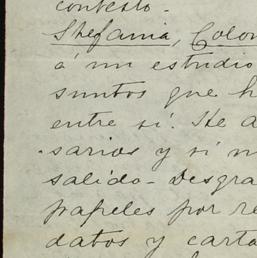 contesto.-
Stefania, Colon
á mi estudio
suntos que h
entre sí. He a
sarios y si m
salido - Desgra
papeles por re
datos y carta